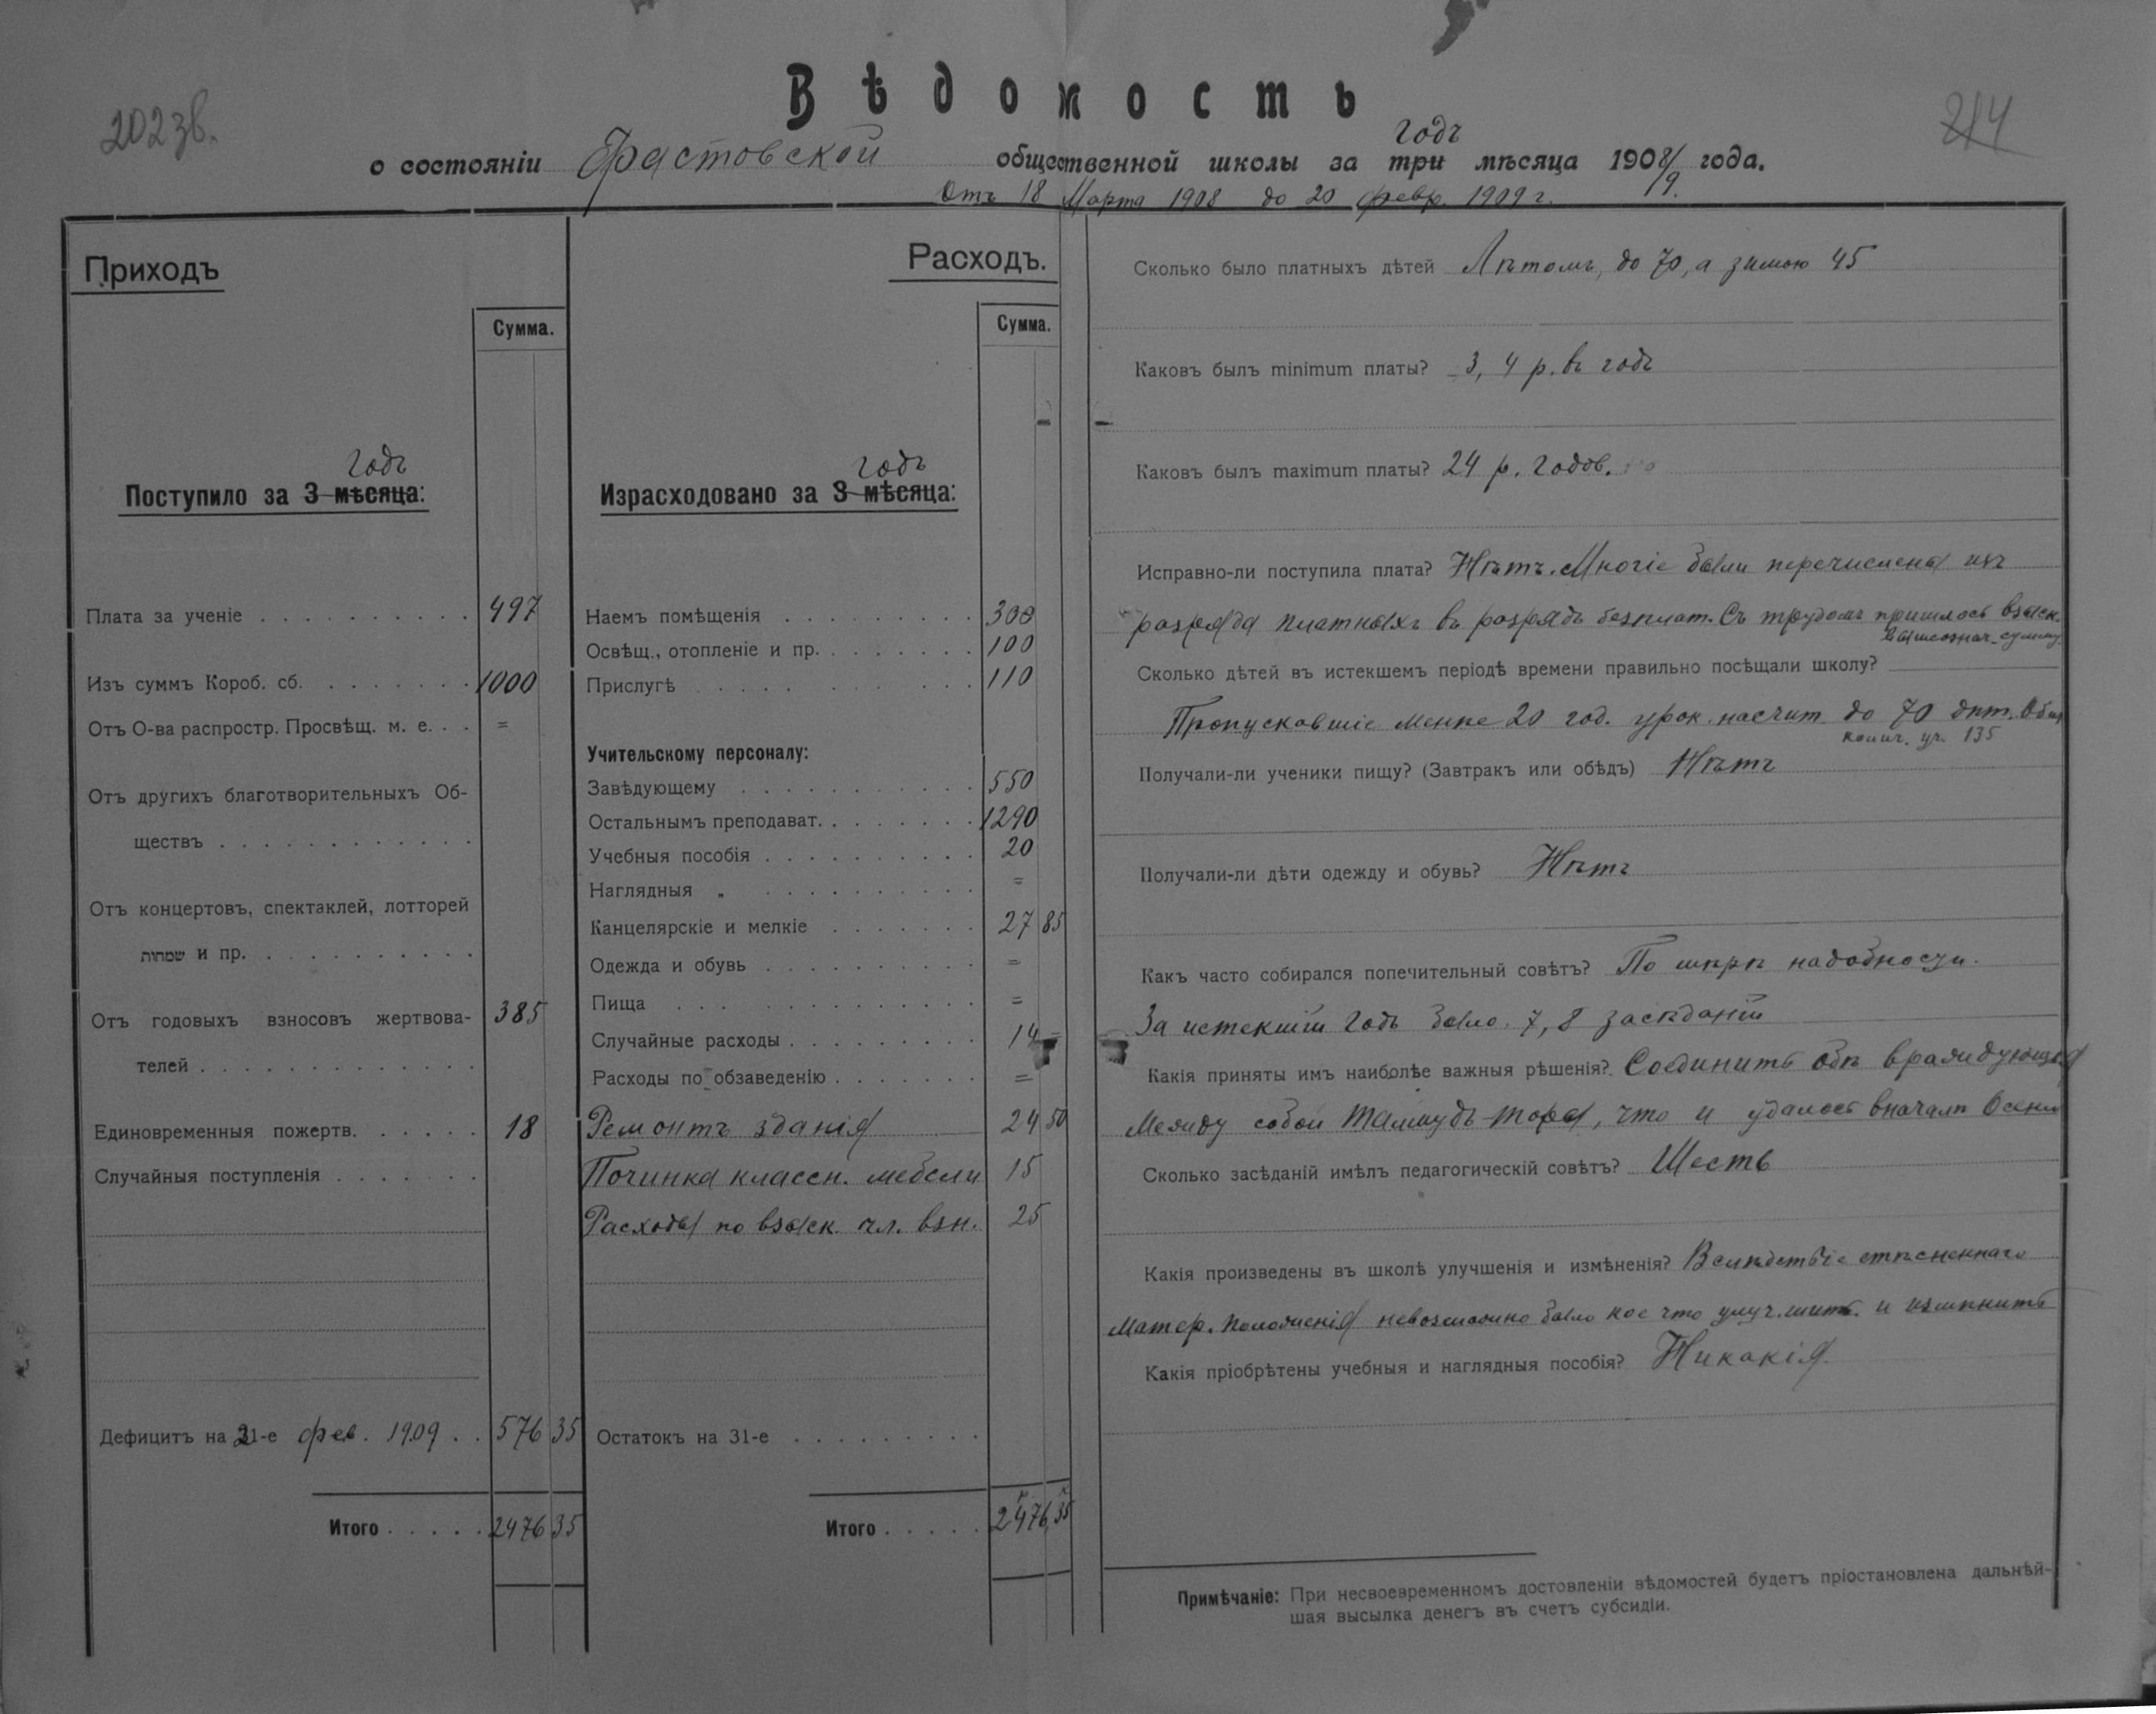 Вѣдомость
2023в.
214
годъ
о состоянiи Фастовской общественной школы за три мѣсяца 1908/9. года.
Отъ 18 Марта 1908 до 20 февр. 1909 г.
Приходъ
Сумма.
годъ
Поступило за 3 мѣсяца:
Плата за ученiе . . . . . . . . . . 497
Изъ суммъ Короб. сб. . . . . . . . 1000
Отъ О-ва распростр. Просвѣщ. м. е. . . =
Отъ другихъ благотворительныхъ Об-
ществъ . . . . . . . . . . . .
Отъ концертовъ, спектаклей, лотторей
שמחות и пр. . . . . . . . . . .
Отъ годовыхъ взносовъ жертвова- 385
телей . . . . . . . . . . . . .
Единовременныя пожертв. . . . . . 18
Случайныя поступленiя . . . . . . .
Дефицитъ на 21-е фев. 1909 . . 576 35
Итого . . . . . 2476 35
Расходъ.
Сумма.
годъ
Израсходовано за 3 мѣсяца:
Наемъ помѣщенiя . . . . . . . . . 300
Освѣщ., отопленiе и пр. . . . . . . . 100
Прислугѣ . . . . . . . . . . . . 110
Учительскому персоналу:
Завѣдующему . . . . . . . . . . . 550
Остальнымъ преподават. . . . . . . . 1290
Учебныя пособiя . . . . . . . . . . 20
Наглядныя „ . . . . . . . . . . =
Канцелярскiе и мелкiе . . . . . . . 27 85
Одежда и обувь . . . . . . . . . . =
Пища . . . . . . . . . . . . . =
Случайные расходы . . . . . . . . . 14 =
Расходы по обзаведенiю . . . . . . . =
Ремонтъ зданiя 24 50
Починка классн. мебели 15
Расходы по взыск. чл. взн. 25
Остатокъ на 31-е . . . . . . . . .
Итого . . . . . 2476 35
Сколько было платныхъ дѣтей Лѣтомъ, до 70, а зимою 45
Каковъ былъ minimum платы? 3, 4 р. въ годъ
Каковъ былъ maximum платы? 24 р. годов.
Исправно-ли поступила плата? Нѣтъ. Многiе были перечислены изъ
разряда платныхъ въ разрядъ безплат. Съ трудомъ пришлось взыск.
вышеознач. сумму.
Сколько дѣтей въ истекшемъ перiодѣ времени правильно посѣщали школу?
Пропускавшiе менѣе 20 год. урок. насчит. до 70 дѣт. Общ
колич. уч. 135
Получали-ли ученики пищу? (Завтракъ или обѣдъ) Нѣтъ
Получали-ли дѣти одежду и обувь? Нѣтъ
Какъ часто собирался попечительный совѣтъ? По мѣрѣ надобности.
За истекшiй годъ было 7, 8 засѣданiй
Какiя приняты имъ наиболѣе важныя рѣшенiя? Соединить обѣ враждующiя
между собой Талмудъ-Торы, что и удалось вначалѣ Осени
Сколько засѣданiй имѣлъ педагогическiй совѣтъ? Шесть
Какiя произведены въ школѣ улучшенiя и измѣненiя? Вслѣдствiе стѣсненнаго
матер. положенiя невозможно было кое что улучшить и измѣнить
Какiя прiобрѣтены учебныя и наглядныя пособiя? Никакiя.
Примѣчанiе: При несвоевременномъ достовленiи вѣдомостей будетъ прiостановлена дальнѣй-
шая высылка денегъ въ счетъ субсидiи.